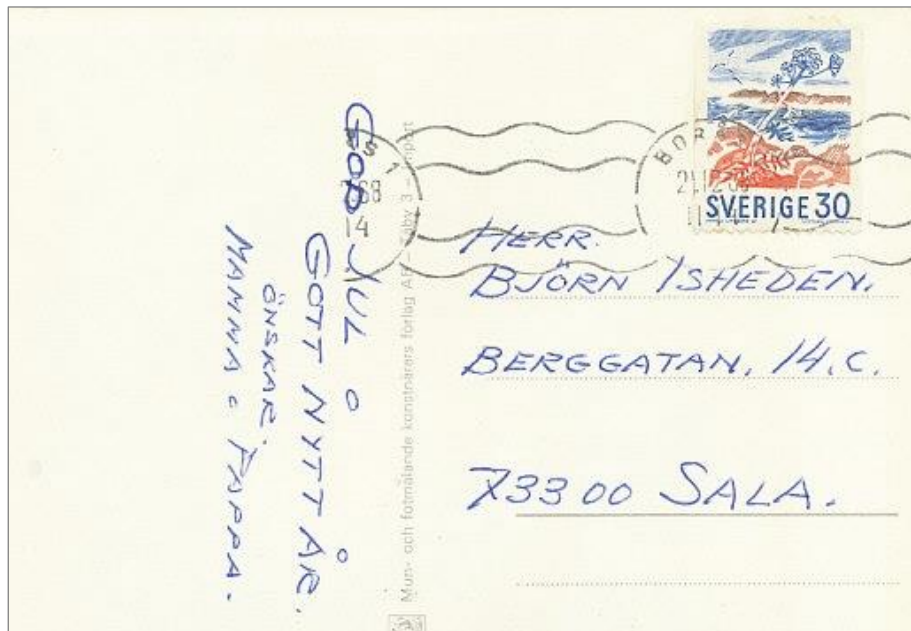 GOD JUL O
GOTT NYTTÅR.
ÖNSKAR.
MAMMA o PAPPA.
Mun- och fotmålande konstnärers förlag
SVERIGE 30
HERR.
BJÖRN ISHEDEN.
BERGGATAN. 14.C.
733 00 SALA.